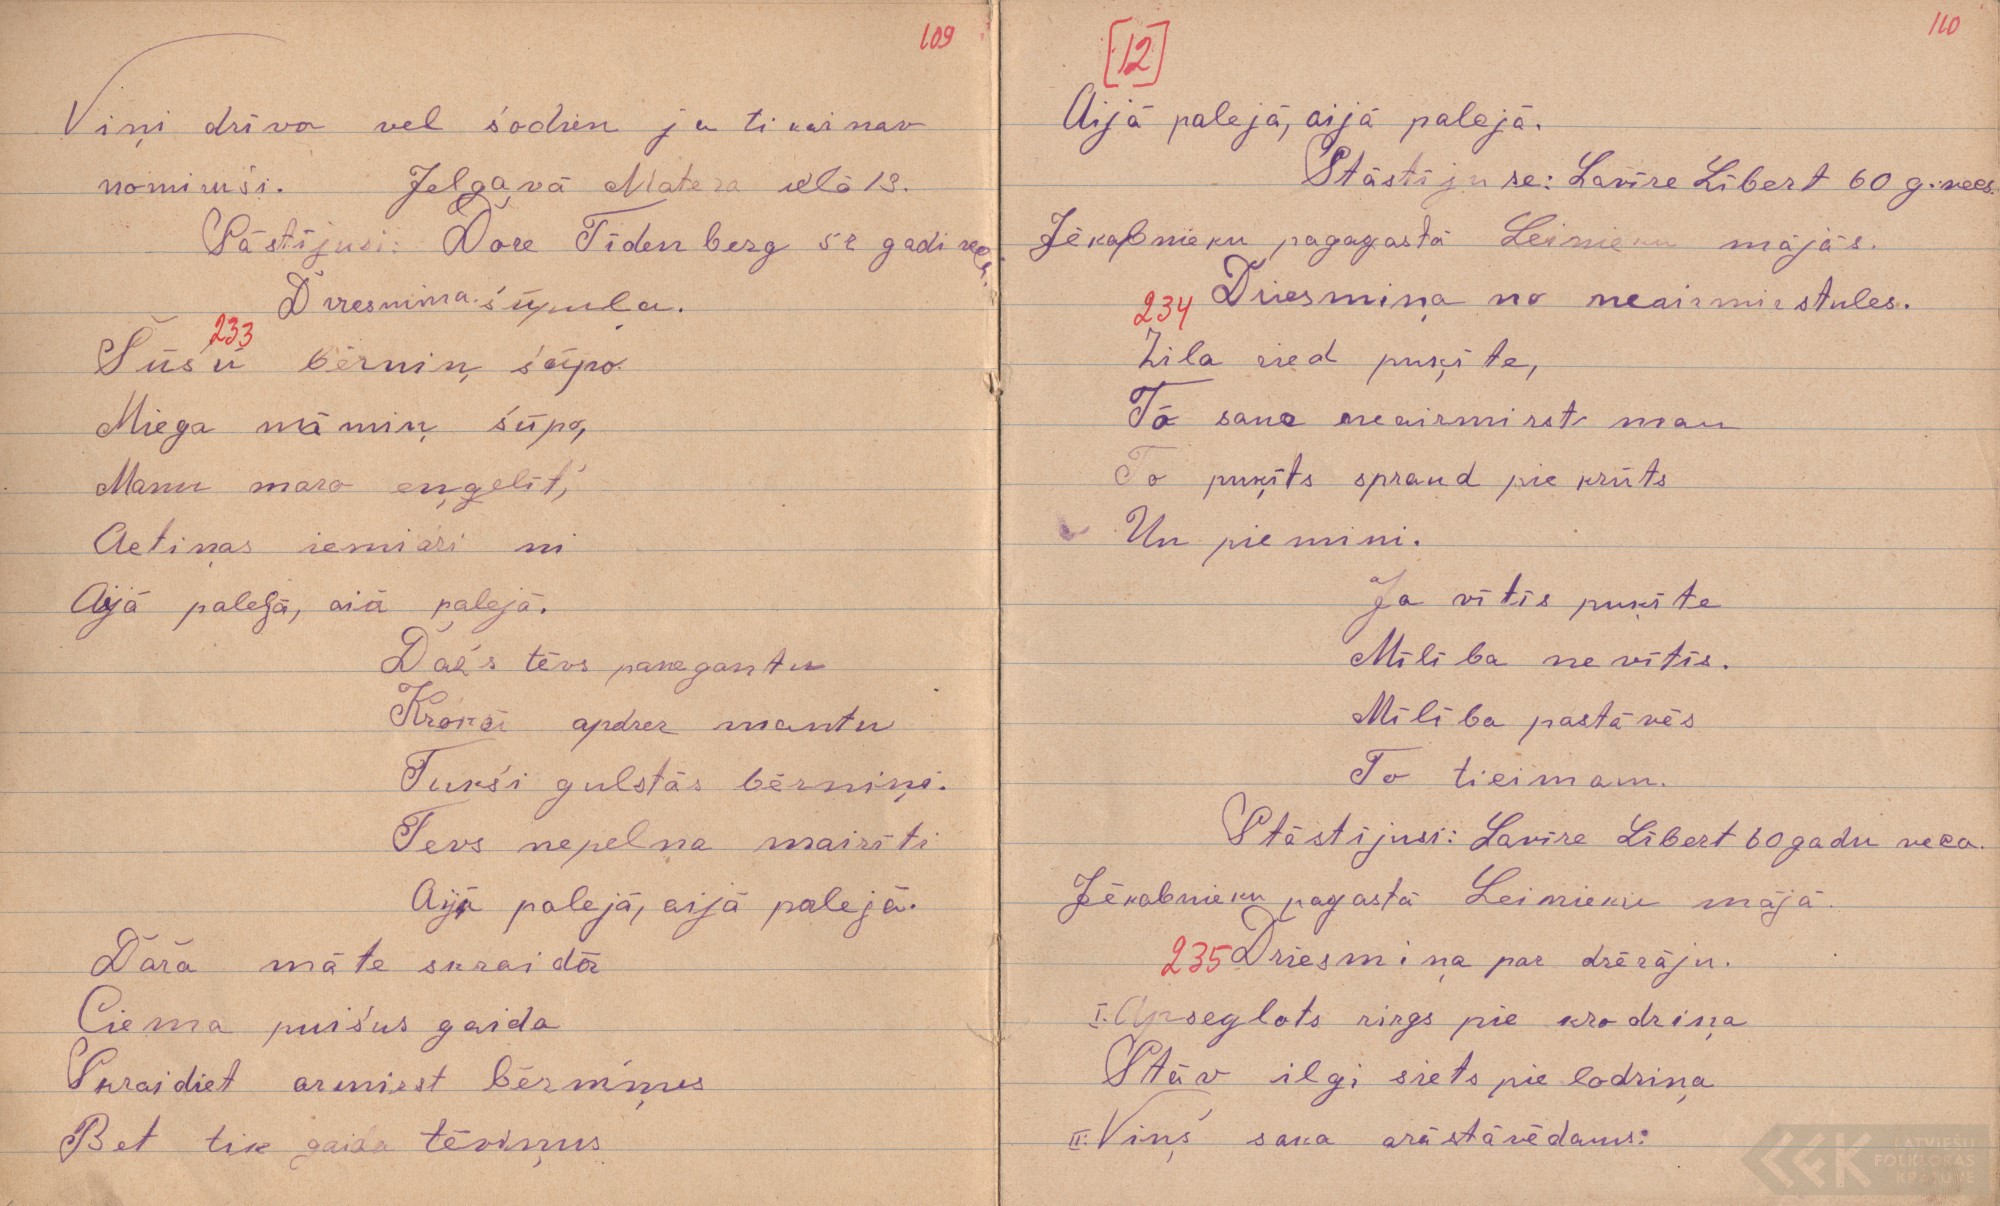 109
Viņi dzīvo vel šodien ja tikai nav
nomiruši. Jelgavā Matera ielā 13.
Stāstījusi: Dore Tīdenberg 52 gadi veca.
Dziesmiņa šūpuļa.
233
Šūšū bērniņ šūpo
Miega māmiņ šūpo,
Manu mazo eņģelīt,
Actiņas iemidzi ni
Aijā palejā, aiā paļejā.
Dač's tēvs pakegantu
Krokai apdzer mantu
Tukši gulstās bērniņi.
Tevs nepelna maizīti
Aijā palejā, aijā palejā.
Dārā māte skraida
Ciema puišus gaida
Skraidiet aizmirst bērniņus
Bet tik gaida tēviņus
110
[12]
Aijā palejā, aijā palejā.
Stāstījuse: Lavīze Lībert 60 g. vecs.
Jēkabnieku pagagastā Leinieku mājās.
234 Dziesmiņa no neaizmirstules.
Zila zied puķīte,
Tā sauc neaizmirst man
To puķīts spraud pie krūts
Un piemini.
Ja vītīs puķīte
Mīlība ne vītīs.
Mīlība pastāvēs
To tieimam.
Stāstījusi: Lavīze Lībert 60 gadu veca.
Jēkabnieku pagastā Leinieku mājā.
235 Dziesmiņa par dzērāju.
I. Apseglots zirgs pie krodziņa
Stāv ilgi siets pie lodziņa
II. Viņš saka ārāstāvēdams:
LATVIEŠU
FOLKLORAS
KRĀTUVE